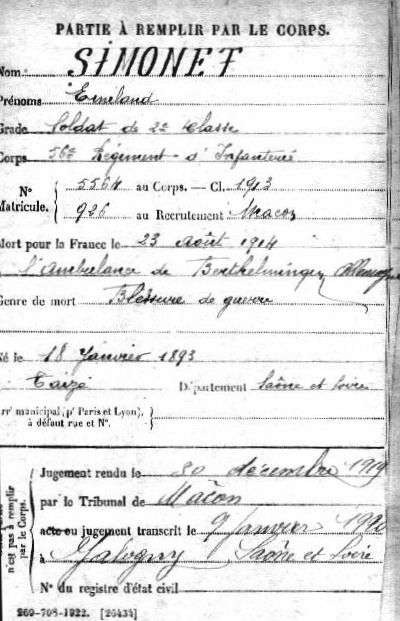 PARTIE À REMPLIR PAR LE CORPS.
Nom SIMONET
Prénoms Emeland
Grade Soldat de 2e classe
Corps 56e Régiment d'Infanterie
N° Matricule. { 5564 au Corps. — Cl. 1913
926 au Recrutement Macon
Mort pour la France le 23 Août 1914
l'Ambulance de Berthelmingen
Genre de mort Blessure de guerre
Né le 18 Janvier 1893
Taizé Département Saône et Loire
arrt municipal (pr Paris et Lyon), }
à défaut rue et N°.
n'est pas à remplir par le Corps.
Jugement rendu le 30 décembre 1919
par le Tribunal de Mâcon
acte ou jugement transcrit le 9 Janvier 1920
à Malogny Saône et Loire
N° du registre d'état civil
269-708-1922. [26434]